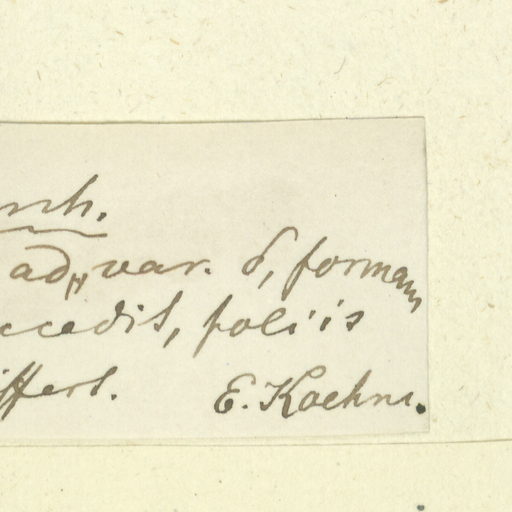 ad var. δ, formam
ccedit, foliis
iffert. E. Koehne.